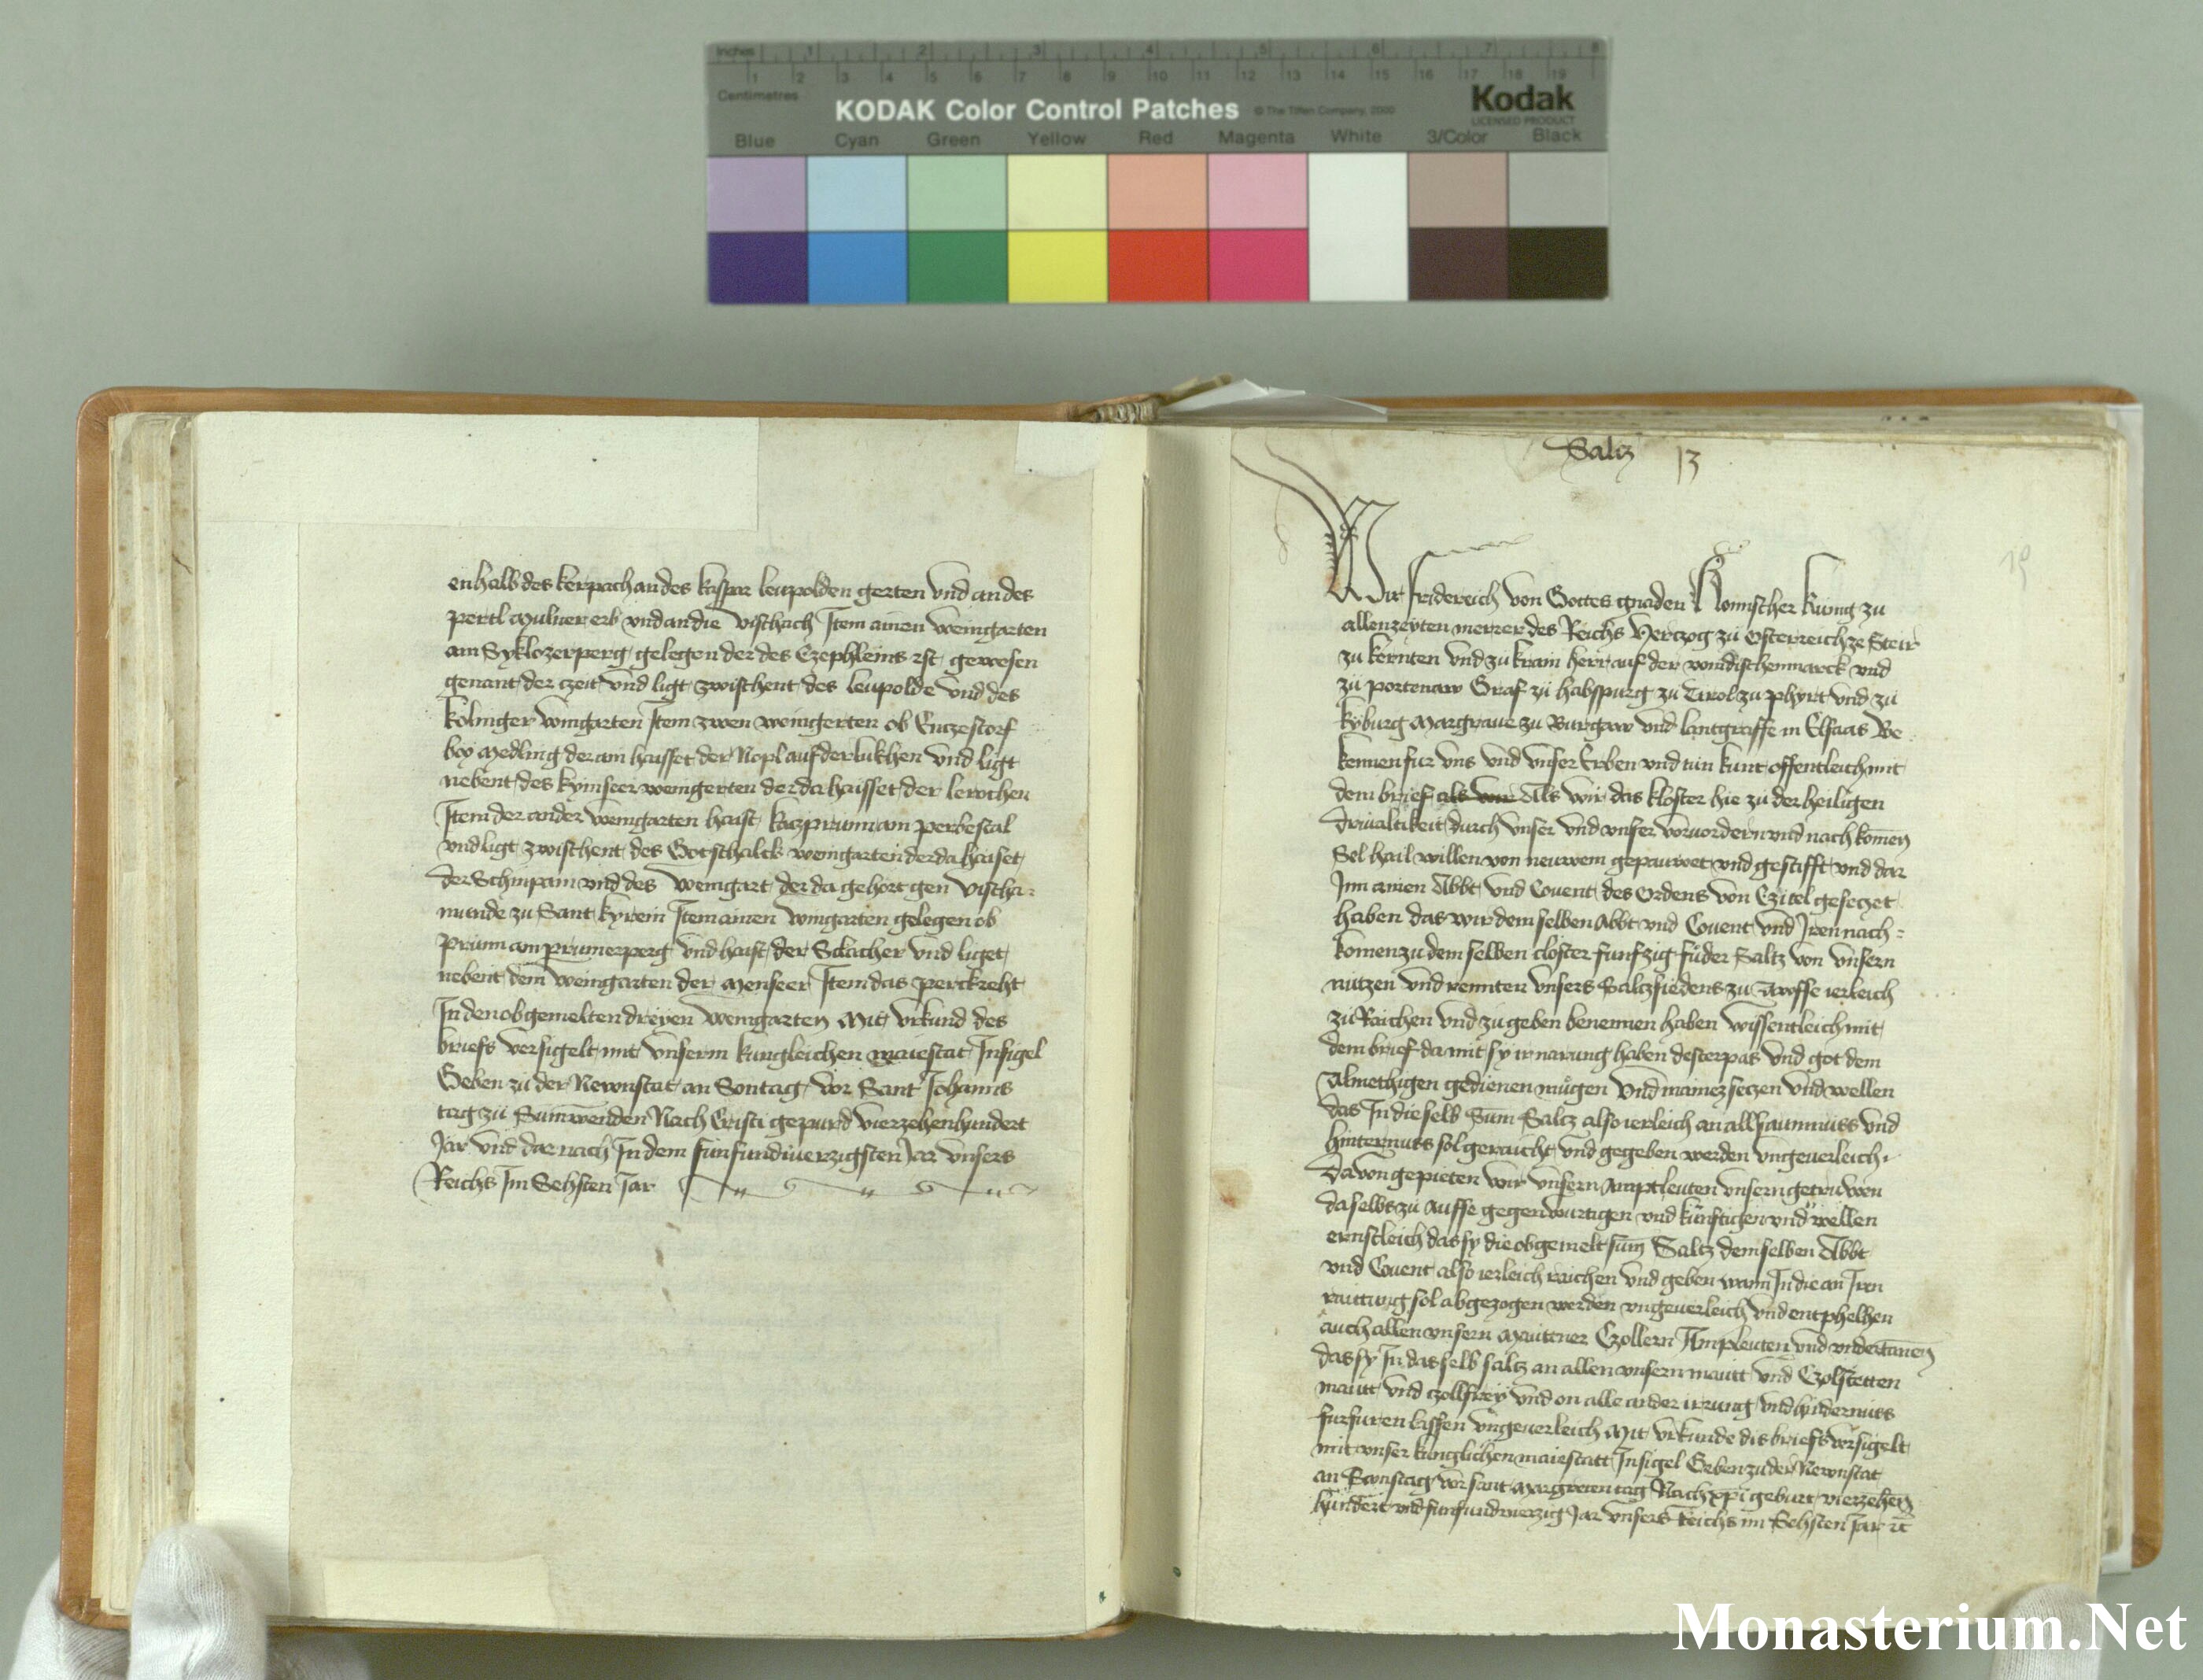 Inches 1 2 3 4 5 6 7 8
1 2 3 4 5 6 7 8 9 10 11 12 13 14 15 16 17 18 19
Centimetres
KODAK Color Control Patches © The Tiffen Company, 2000 Kodak
LICENSED PRODUCT
Blue Cyan Green Yellow Red Magenta White 3/Color Black
enhalb des kerpach an des kaspar leupolden gerten vnd an des
pertl mulner erb vnd an die vischach Item ainen weingarten
am Syklozerperg gelegen der des Czephleins ist gewesen
genant der czeit vnd ligt zwischent des leupolde vnd des
kolniger wingarten Item zwen weingerten ob Enczestorf
bey medling der ain haisset der Nopl auf der lukhen vnd ligt
nebent des kymseer weingerten der da haisset der lerochen
Item der ander weingarten haist kaczprunn am perbestal
vnd ligt zwischent des Gotschalck weingarten der da haiset
der Schinpain vnd des weingart der da gehort gen vischa-
munde zu Sant kyrein Item ainen wingarten gelegen ob
prunn am prumerperg vnd haist der Sckacher vnd liget
nebent dem weingarten der menseer Item das perckreht
In den obgemelten dreyen weingarten Mit vrkund des
briefs versigelt mit vnserm kungleichen maiestat Insigel
Geben zu der Newnstat an Sontag vor Sant Johanns
tag zu Sunwenden Nach Cristi gepurd vierzehenhundert
Jar vnd dar nach In dem funfundvierzigsten Jar vnsers
Reichs Im Sehsten Jar
Salcz 13
19
Wir fridereich von Gottes gnaden Romischer kunig zu
allenzeyten merrer des Reichs Herczog zu Osterreich ze Steir
zu kernten vnd zu krain herr auf der windischenmarck vnd
zu portenaw Graf zu habspurg zu Tirol zu phyrt vnd zu
kyburg Margraue zu Burgaw vnd lantgraffe in Elsaas Be
kennen fur vns vnd vnser Erben vnd tun kunt offentleich mit
dem brief als wir Als wir das kloster hie zu der heiligen
Driualtikeit durch vnser vnd vnser voruordern vnd nachkomen
Sel hail willen von neuwem gepauwet vnd gestifft vnd dar
Inn ainen Abbt vnd Couent des ordens von Czitel geseczet
haben das wir dem selben Abbt vnd Couent vnd Iren nach-
komen zu dem selben closter funfzig fuder Saltz von vnsern
nutzen vnd rennten vnsers Salczsiedens zu Awsse ierleich
zu Raichen vnd zu geben benennen haben wissentleich mit
dem brief damit sy ir narung haben dester pas vnd got dem
Almethigen gedienen mugen vnd mainen seczen vnd wellen
das In die selb Sum Saltz also ierleich an all saumnuss vnd
hinternuss sol geraicht vnd gegeben werden vngeuerleich
Dauon gepieten wir vnsern amptleuten vnsern getruwen
daselbs zu ausse gegenwurtigen vnd kunftigen vnd wellen
ernstleich das sy die obgemelt sum Saltz dem selben Abbt
vnd Couent also ierleich raichen vnd geben wann In die an Iren
raittung sol abgezogen werden vngeuerleich vnd entphelhen
auch allen vnsern mauttner Czollern Ampleuten vnd vndertanen
das sy In das selb saltz an allen vnsern mautt vnd Czolstetten
mautt vnd czollfrey vnd on alle ander irrung vnd hindernuss
furfuren lassen vngeuerleich Mit vrkunde dis briefs versigelt
mit vnser kunglichen maiestatt Insigel Geben zu der Newnstat
an Samstag vor sant margreten tag Nach xpi geburt vierzehen
hundert vnd funfundvierzig Jar vnsers Reichs im Sehsten Jar etc
Monasterium.Net